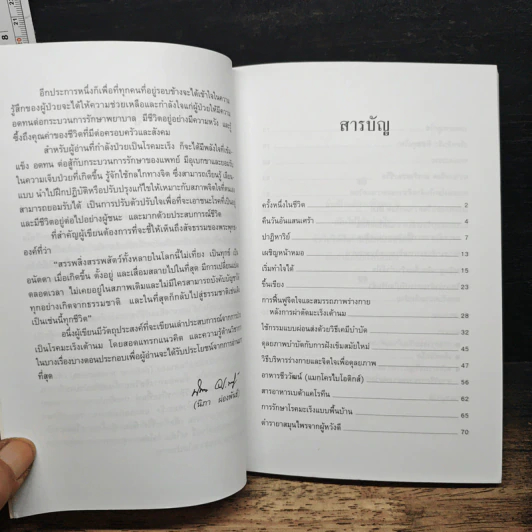 อีกประการหนึ่งก็เพื่อที่ทุกคนที่อยู่รอบข้างจะได้เข้าใจในความ
รู้สึกของผู้ป่วยจะได้ให้ความช่วยเหลือและกำลังใจแก่ผู้ป่วยให้มีความ
อดทนต่อกระบวนการรักษาพยาบาล มีชีวิตอยู่อย่างมีความหวัง และรู้
ซึ้งถึงคุณค่าของชีวิตที่มีต่อครอบครัวและสังคม
สำหรับผู้อ่านที่กำลังป่วยเป็นโรคมะเร็ง ก็จะได้มีพลังใจที่เข้ม
แข็ง อดทน ต่อสู้กับกระบวนการรักษาของแพทย์ มีอุเบกขาและยอมรับ
ในความเจ็บป่วยที่เกิดขึ้น รู้จักใช้กลไกทางจิต ซึ่งสามารถเรียนรู้ เลียน
แบบ นำไปฝึกปฏิบัติหรือปรับปรุงแก้ไขให้เหมาะกับสภาพจิตใจที่ตนเอง
สามารถยอมรับได้ เป็นการปรับตัวปรับใจเพื่อที่จะเอาชนะโรคที่เป็นอยู่
และมีชีวิตอยู่ต่อไปอย่างผู้ชนะ และมากด้วยประสบการณ์ชีวิต
ที่สำคัญผู้เขียนต้องการที่จะชี้ให้เห็นถึงสัจธรรมของพระพุทธ
องค์ที่ว่า
"สรรพสิ่งสรรพสัตว์ทั้งหลายในโลกนี้ไม่เที่ยง เป็นทุกข์ เป็น
อนัตตา เมื่อเกิดขึ้น ตั้งอยู่ และเสื่อมสลายไปในที่สุด มีการเปลี่ยนแปลง
ตลอดเวลา ไม่เคยอยู่ในสภาพเดิมและไม่มีใครสามารถบังคับบัญชาได้
ทุกอย่างเกิดจากธรรมชาติ และในที่สุดก็กลับไปสู่ธรรมชาติเช่นเดิม
เป็นเช่นนี้ทุกชีวิต"
อนึ่งผู้เขียนมีวัตถุประสงค์ที่จะเขียนเล่าประสบการณ์จากการป่วย
เป็นโรคมะเร็งเต้านม โดยสอดแทรกแนวคิด และความรู้ด้านวิชาการ
ในบางเรื่องบางตอนประกอบเพื่อผู้อ่านจะได้รับประโยชน์จากการอ่านมาก
ที่สุด
(นิภา ผ่องพันธ์)
สารบัญ
ครั้งหนึ่งในชีวิต 2
คืนวันอันแสนเศร้า 4
ปาฏิหาริย์ 7
เผชิญหน้าหมอ 13
เริ่มทำใจได้ 15
ขึ้นเขียง 23
การฟื้นฟูจิตใจและสมรรถภาพร่างกาย
หลังการผ่าตัดมะเร็งเต้านม 28
ใช้กรรมแบบผ่อนส่งด้วยวิธีเคมีบำบัด 32
ดุลยภาพบำบัดกับการฝังเข็มสมัยใหม่ 45
วิธีบริหารร่างกายและจิตใจเพื่อดุลยภาพ 47
อาหารชีววัฒน์ (แมกโครไบโอติกส์) 56
สารอาหารเบต้าแคโรทีน 62
การรักษาโรคมะเร็งแบบพื้นบ้าน 65
ตำรายาสมุนไพรจากผู้หวังดี 70